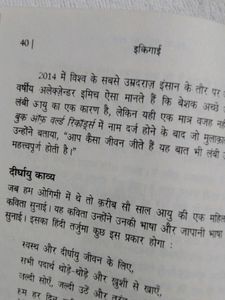 40 |
इकिगाई
2014 में विश्व के सबसे उम्रदराज़ इंसान के तौर पर
वर्षीय अलेक्ज़ेन्डर इमिच ऐसा मानते हैं कि बेशक अच्छे
लंबी आयु का एक कारण है, लेकिन यही एक मात्र वजह नहीं
बुक ऑफ वर्ल्ड रिकॉर्ड्स में नाम दर्ज होने के बाद जो मुलाक़ा
उन्होंने बताया, “आप कैसा जीवन जीते हैं यह बात भी लंबी
महत्त्वपूर्ण होती है।”
दीर्घायु काव्य
जब हम ओगिमी में थे तो क़रीब सौ साल आयु की एक महिल
कविता सुनाई। यह कविता उन्होंने उनकी भाषा और जापानी भाषा
सुनाई। इसका हिंदी तर्जुमा कुछ इस प्रकार होगा :
स्वस्थ और दीर्घायु जीवन के लिए,
सभी पदार्थ थोड़े-थोड़े और ख़ुशी से खाएँ,
जल्दी सोएँ, जल्दी उठें और
हम हर दिन